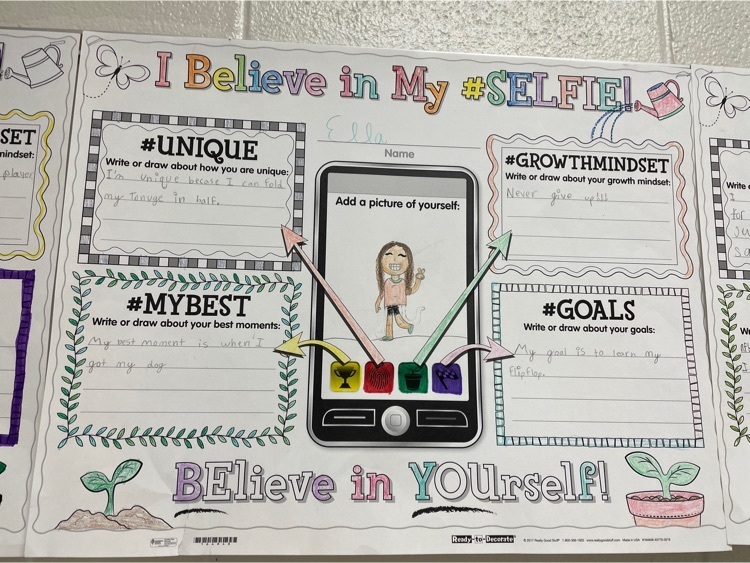 I Believe in My #SELFIE!
Ella
Name
#UNIQUE
Write or draw about how you are unique:
I'm unique becose I can fold
my Tonuge in half.
#GROWTHMINDSET
Write or draw about your growth mindset:
Never give up!!!
Add a picture of yourself:
#MYBEST
Write or draw about your best moments:
My best moment is when I
got my dog
#GOALS
Write or draw about your goals:
My goal is to learn my
flipflop.
BElieve in YOUrself!
Ready-to-Decorate
SET
mindset:
player